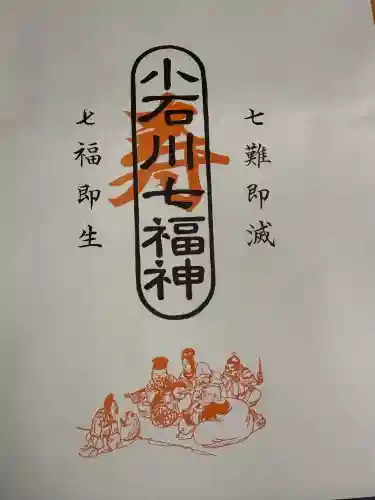 七難即滅
小石川七福神
七福即生